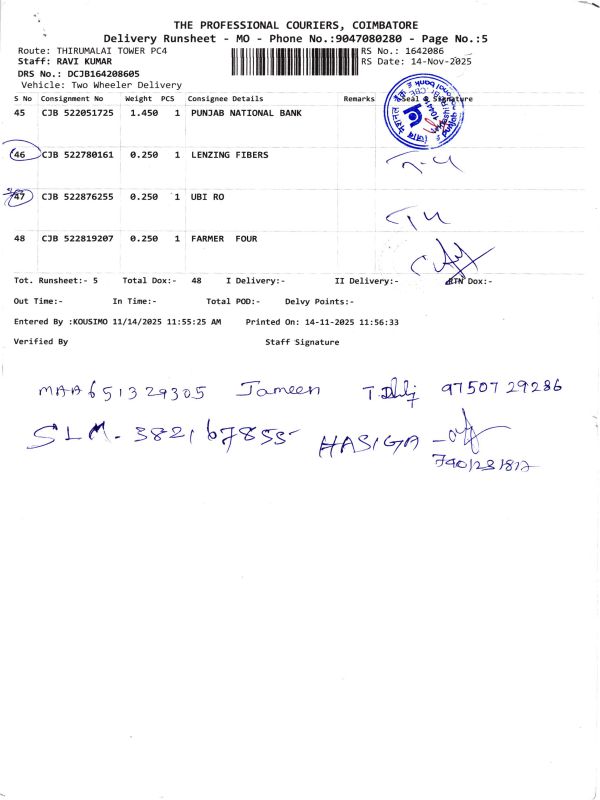 THE PROFESSIONAL COURIERS, COIMBATORE
Delivery Runsheet - MO - Phone No.:9047080280 - Page No.:5
Route: THIRUMALAI TOWER PC4 RS No.: 1642086
Staff: RAVI KUMAR RS Date: 14-Nov-2025
DRS No.: DCJB164208605
Vehicle: Two Wheeler Delivery
S No Consignment No Weight PCS Consignee Details Remarks Seal & Signature
45 CJB 522051725 1.450 1 PUNJAB NATIONAL BANK
46 CJB 522780161 0.250 1 LENZING FIBERS
47 CJB 522876255 0.250 1 UBI RO
48 CJB 522819207 0.250 1 FARMER FOUR
Tot. Runsheet:- 5 Total Dox:- 48 I Delivery:- II Delivery:- RTN Dox:-
Out Time:- In Time:- Total POD:- Delvy Points:-
Entered By :KOUSIMO 11/14/2025 11:55:25 AM Printed On: 14-11-2025 11:56:33
Verified By Staff Signature
MAA651329305 Jameen 9750729286
SLM-382167855 HASIGA